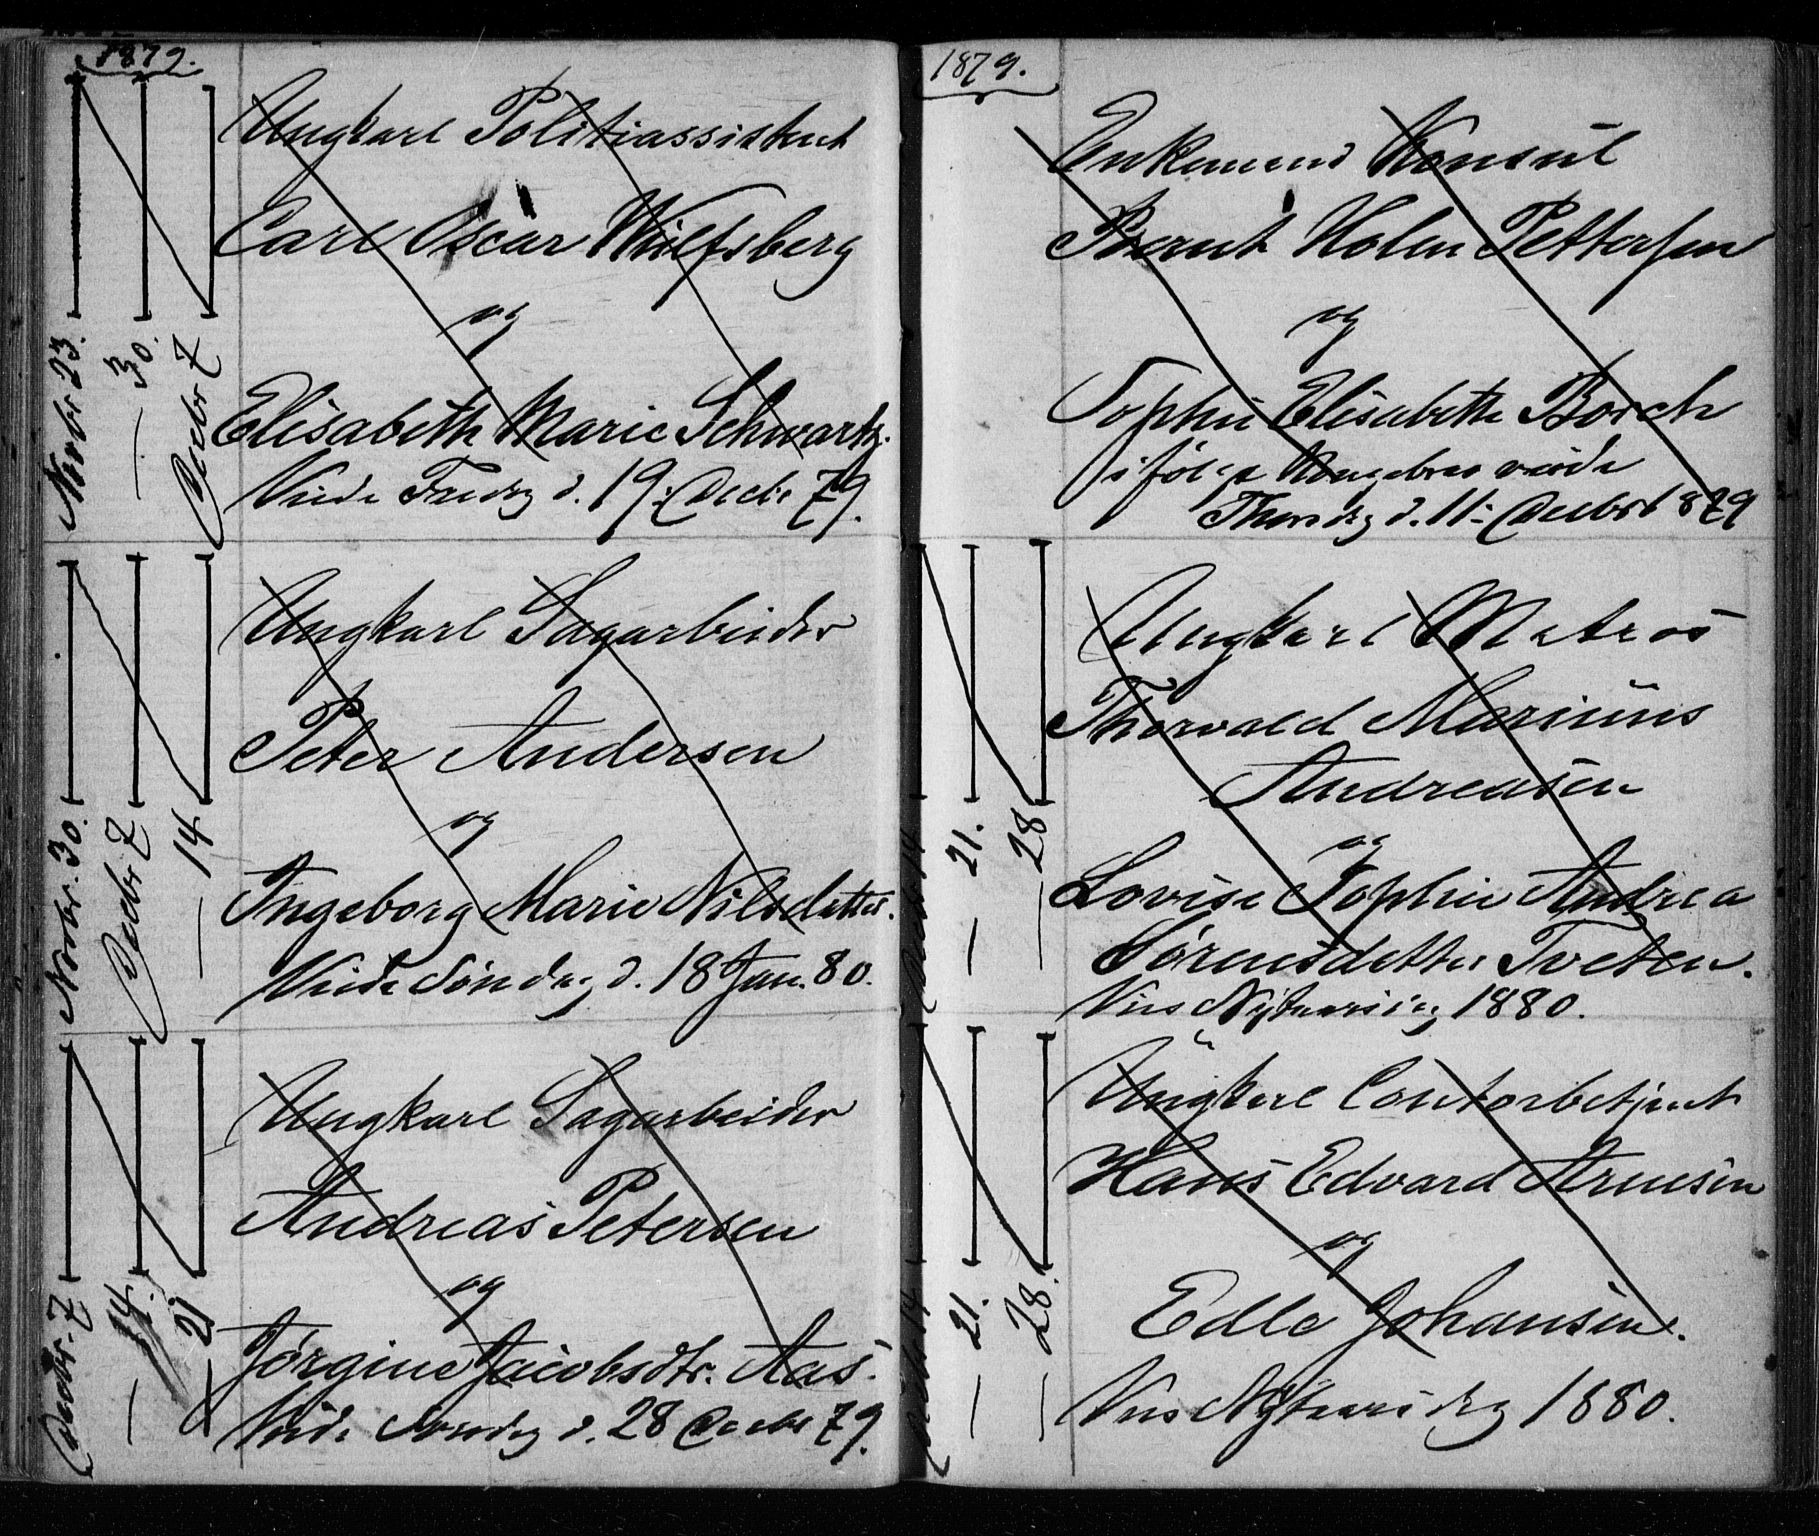 1879.
Novbr 23.
— 30.
Decbr 7
Ungkarl Politiassistent
Carl Oscar Wulfsberg
og
Elisabeth Marie Schwartz.
Viede Fredg d. 19: Decbr 79.
Novbr. 30.
Decbr 7
— 14
Ungkarl Sagarbeider
Peter Andersen
og
Ingeborg Marie Nilsdatter.
Viede Søndag d. 18 Jan. 80.
Decbr. 7
— 14.
— 21
Ungkarl Sagarbeider
Andreas Petersen
og
Jørgine Jacobsdtr. Aas.
Viede Søndg d. 28 Decbr 79.
1879.
Enkemand Konsul
Bernt Holm Pettersen
og
Sophie Elisabeth Borch
ifølge Kongebrev viede
Thorsdg d. 11: Decbr 1879
Decbr 14
— 21.
— 28
Ungkarl Matros
Thorvald Marinus
Andreasen
og
Lovise Sophie Andrea
Sørensdatter Tveten.
Vies Nytaarsdag 1880.
Decbr 14
— 21.
— 28.
Ungkarl Contorbetjent
Hans Edvard Arnesen
og
Edle Johansen.
Vies Nytaarsdag 1880.